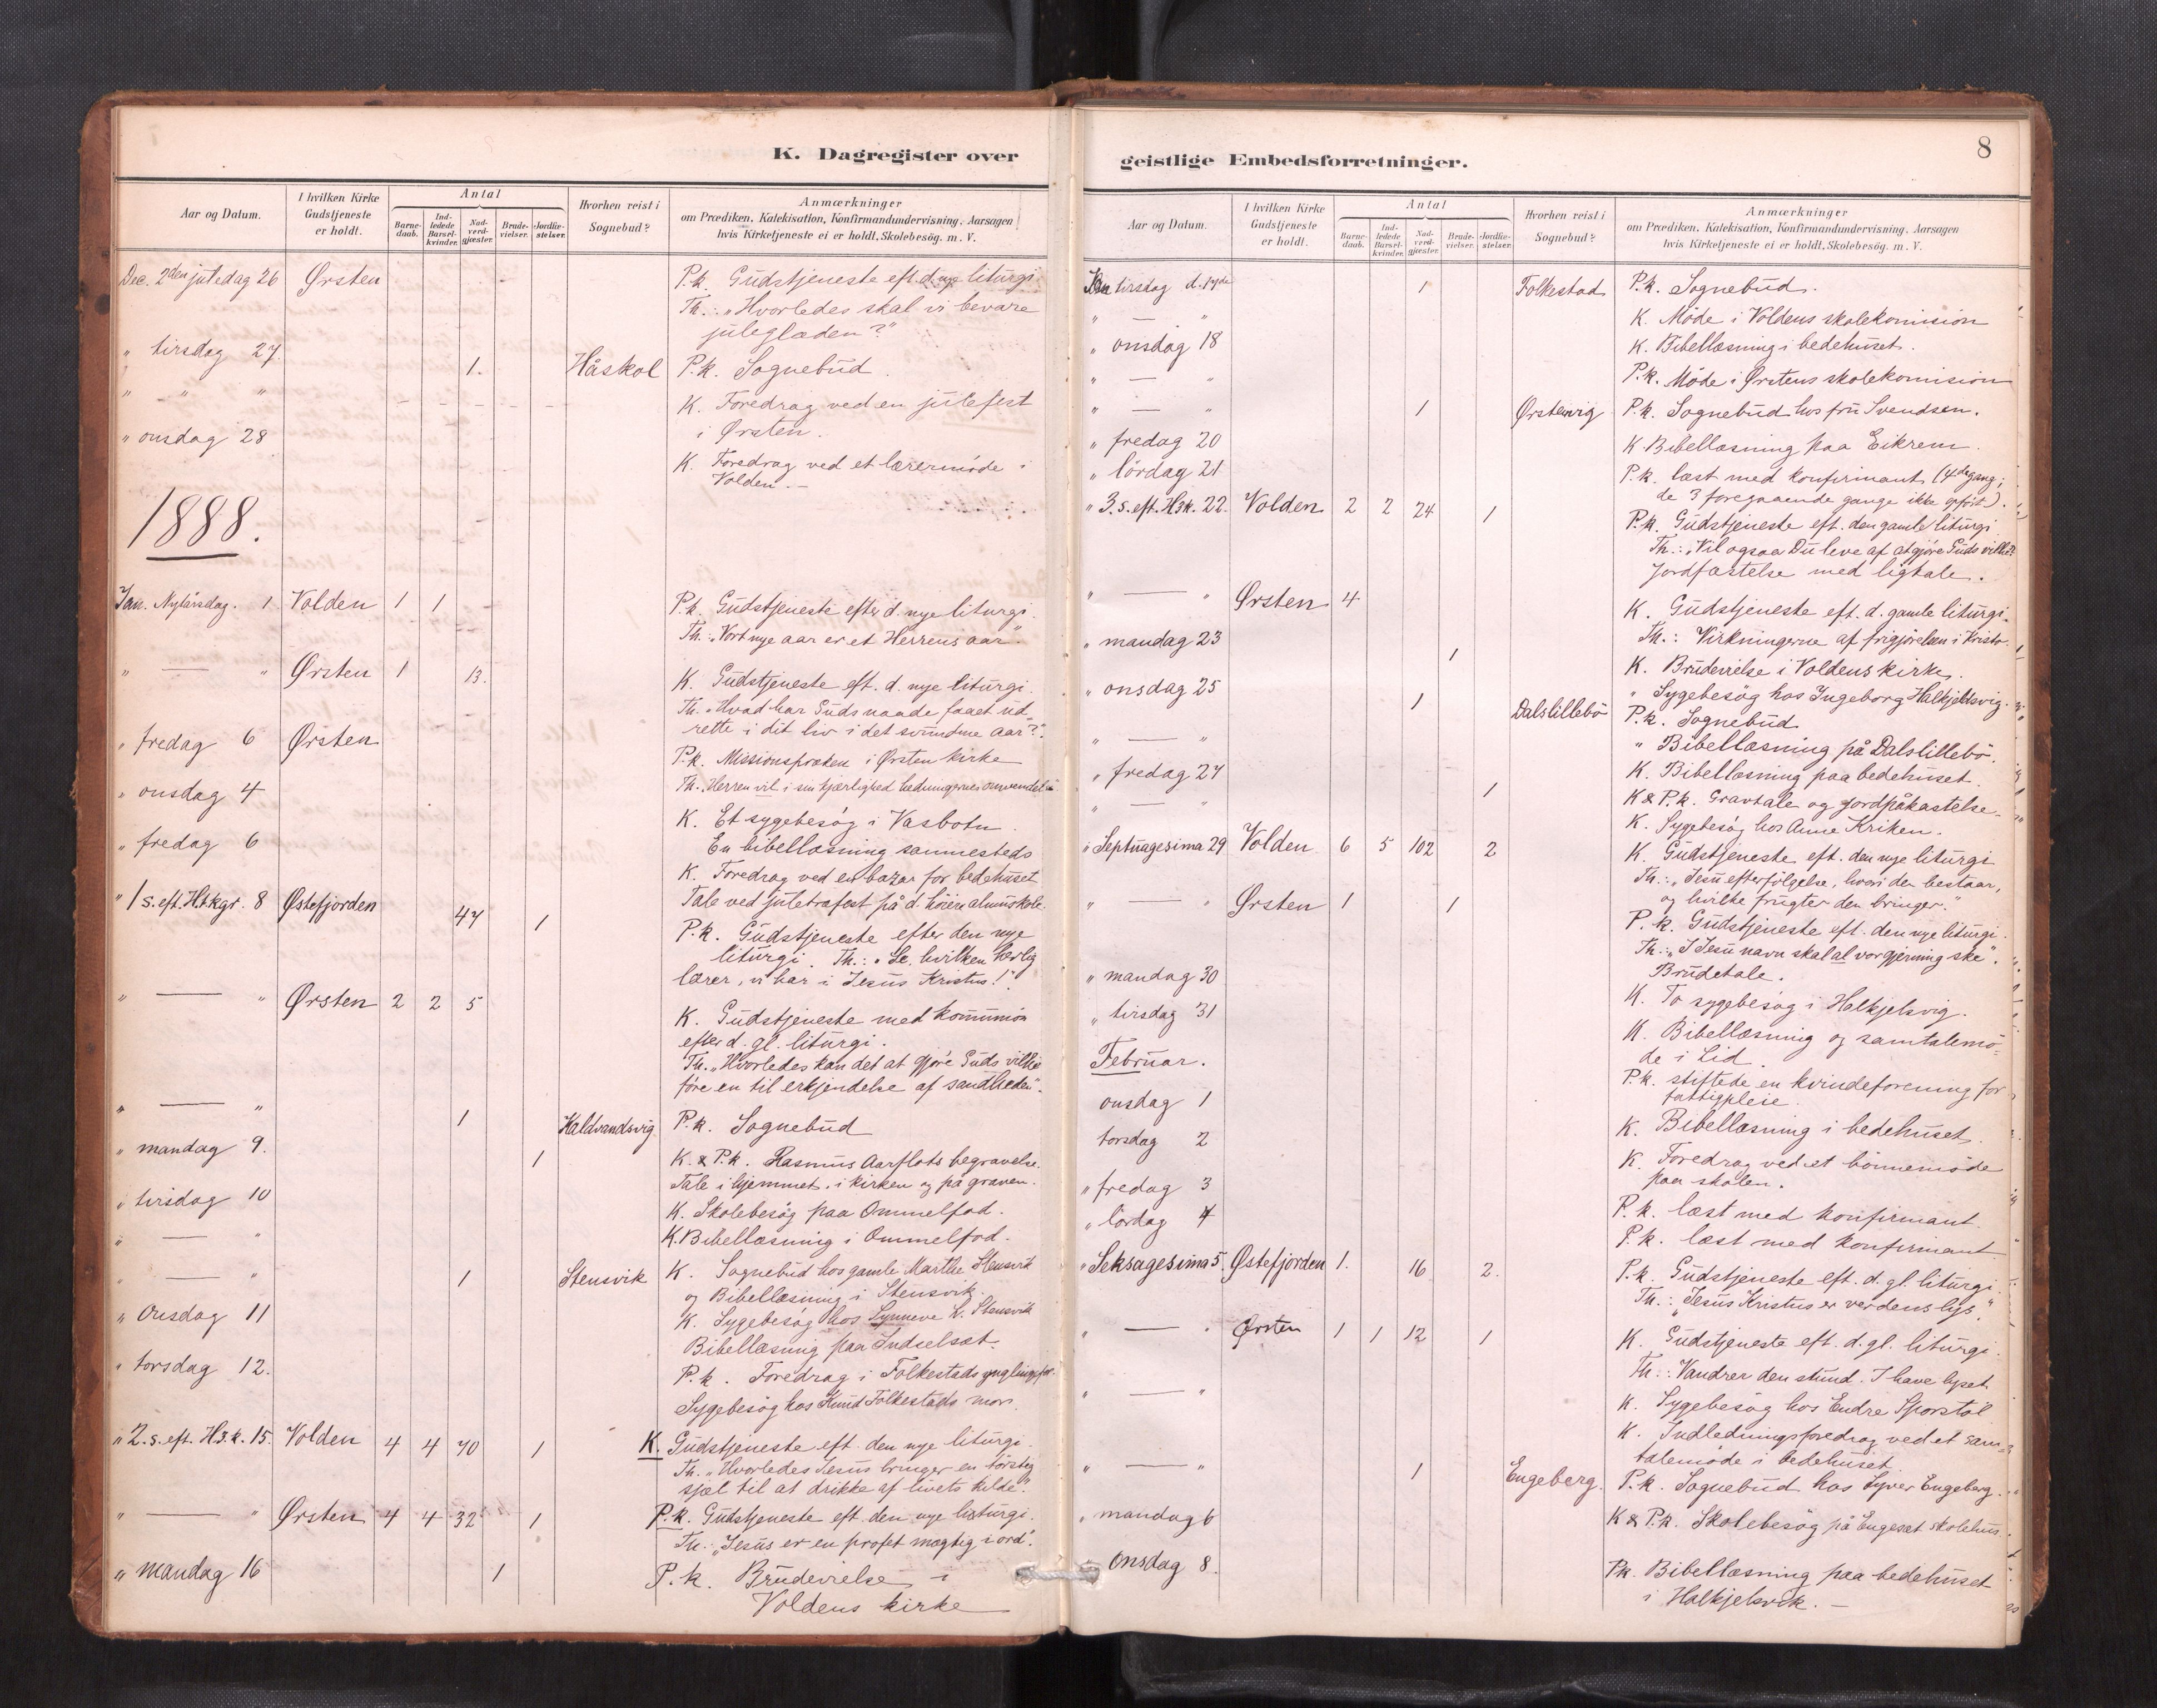 K. Dagregister over
Aar og Datum.
I hvilken Kirke Gudstjeneste er holdt.
Antal
Barne-daab.
Ind-ledede Barsel-kvinder.
Nad-verd-gjæster.
Brude-vielser.
Jordfæ-stelser.
Hvorhen reist i Sognebud?
Anmærkninger
om Prædiken, Katekisation, Konfirmandundervisning, Aarsagen
hvis Kirketjeneste ei er holdt, Skolebesög. m. V.
Dec. 2den juledag 26 Ørsten P.k. Gudstjeneste eft. d. nye liturgi.
Th.: „Hvorledes skal vi bevare
juleglæden?"
" tirsdag 27. 1. Håskol P.k. Sognebud.
" " " K. Foredrag ved en julefest
i Ørsten.
" onsdag 28 K. Foredrag ved et lærermöde i
Volden. —
1888.
Jan. Nytårsdag. 1 Volden 1 1 P.k. Gudstjeneste efter d. nye liturgi.
Th.: „Vort nye aar er et Herrens aar".
" — " Ørsten 1 13. K. Gudstjeneste eft. d. nye liturgi.
Th. „Hvad har Guds naade faaet ud-
rette i dit liv i det svundne aar?".
" fredag 6 Ørsten P.k. Missionspræken i Ørsten kirke
Th. „Herren vil i sin kjærlighed hedningernes omvendelse
" onsdag 4 K. Et sygebesög i Vasbotn.
" fredag 6 En bibellæsning sammesteds
K. Foredrag ved en bazar for bedehuset
Tale ved juletræfest på d. höiere almuskole.
" 1 s. eft. H.3kgr. 8 Østefjorden 47 1 P.k. Gudstjeneste efter den nye
liturgi. Th.: „Se, hvilken herlig
lærer, vi har i Jesus Kristus!"
" — " Ørsten 2 2 5 K. Gudstjeneste med kommunion
efter d. gl. liturgi.
Th. „Hvorledes kan det at gjöre Guds vilkie
före en til erkjendelse af sandheden".
" — " 1 Haldvandsvig. P.k. Sognebud
" mandag 9. 1 K. & P.k. Rasmus Aarflots begravelse.
Tale i hjemmet, i kirken og på graven.
" tirsdag 10 K. Skolebesög paa Ommelfod.
" — " K. Bibellæsning i Ommelfod.
" — " 1 Stensvik K. Sognebud hos gamle Marthe Stensvik
og Bibellæsning i Stensvik.
" Onsdag 11 K. Sygebesög hos Synneve K. Stensvik
Bibellæsning paa Indselset.
" torsdag 12. P.k. Foredrag i Folkestads ynglingsfor.
Sygebesög hos Knud Folkestads mor.
" 2. s. eft. H.3.k. 15. Volden 4 4 70 1 K. Gudstjeneste eft. den nye liturgi.
Th. „Hvorledes Jesus bringer en törstig
sjæl til at drikke af livets kilde".
" — " Ørsten 4 4 32 1 P.k. Gudstjeneste eft. den nye liturgi.
Th.: „Jesus er en profet mægtig i ord".
" mandag 16 1 P.k. Brudevielse i
Voldens kirke
8
geistlige Embedsforretninger.
Aar og Datum.
I hvilken Kirke Gudstjeneste er holdt.
Antal
Barne-daab.
Ind-ledede Barsel-kvinder.
Nad-verd-gjæster.
Brude-vielser.
Jordfæ-stelser.
Hvorhen reist i Sognebud?
Anmærkninger
om Prædiken, Katekisation, Konfirmandundervisning, Aarsagen
hvis Kirketjeneste ei er holdt, Skolebesög. m. V.
Jan tirsdag d. 17de 1 Folkestad P.k. Sognebud.
" — " K. Möde i Voldens skolekomision
" onsdag 18 K. Bibellæsning i bedehuset.
" — " P.k. Möde i Ørstens skolekomision
" — " 1 Ørstenvig P.k. Sognebud hos fru Svendsen.
" fredag 20 K Bibellæsning paa Eikrem.
" lördag 21 P.k. læst med konfirmant (4de gang;
de 3 foregaaende gange ikke opfört).
" 3. s. eft. H3k. 22. Volden 2 2 24 1 P.k. Gudstjeneste eft. den gamle liturgi
Th.: „Vil ogsaa Du leve af at gjöre Guds villie?"
Jordfæstelse med ligtale.
" — " Ørsten 4 K. Gudstjeneste eft. d. gamle liturgi.
Th.: Virkningerne af frigjörelsen i Kristo.
" mandag 23 1 K. Brudevielse i Voldens kirke.
" Sygebesög hos Ingeborg Halkjelsvig.
" onsdag 25 1 Dalslillebö P.k. Sognebud.
" Bibellæsning på Dalslillebö.
" — " K. Bibellæsning paa bedehuset.
" fredag 27 1 K & P.k. Gravtale og jordpåkastelse.
" — " K. Sygebesög hos Anne Kriken.
" Septuagesima 29 Volden 6 5 102 2 K. Gudstjeneste eft. den nye liturgi
Th.: „Jesu efterfölgelse, hvori den bestaar,
og hvilke frugter den bringer."
" — " Ørsten 1 1 P.k. Gudstjeneste eft. den nye liturgi.
Th.: „I Jesu navn skal al vor gjerning ske".
Brudetale.
" mandag 30 K. To sygebesög i Halkjelsvig.
" tirsdag 31 K. Bibellæsning og samtalemö-
de i Lid
Februar. P.k. stiftede en kvindeforening for
fattigpleie.
onsdag 1 K. Bibellæsning i bedehuset.
torsdag 2 K. Foredrag ved et bönnemöde
paa skolen.
" fredag 3 P.k. læst med konfirmant.
" lördag 4 P.k. læst med konfirmant
" Seksagesima 5. Østefjorden 1. 16 2. P.k. Gudstjeneste eft. d. gl. liturgi.
Th.: „Jesus Kristus er verdens lys."
" — " Ørsten 1 1 12 1 K. Gudstjeneste eft. d. gl. liturgi.
Th.: Vandrer den stund I have lyset
" — " K. Sygebesög hos Endre Sporstöl
K. Indledningsforedrag ved et sam-
talemöde i bedehuset.
" — " 1 Engeberg. P.k. Sognebud hos Syver Engeberg.
" mandag 6 K & P.k. Skolebesög på Engeset skolehus.
Onsdag 8. P.k. Bibellæsning paa bedehuset
i Halkjelsvik. —